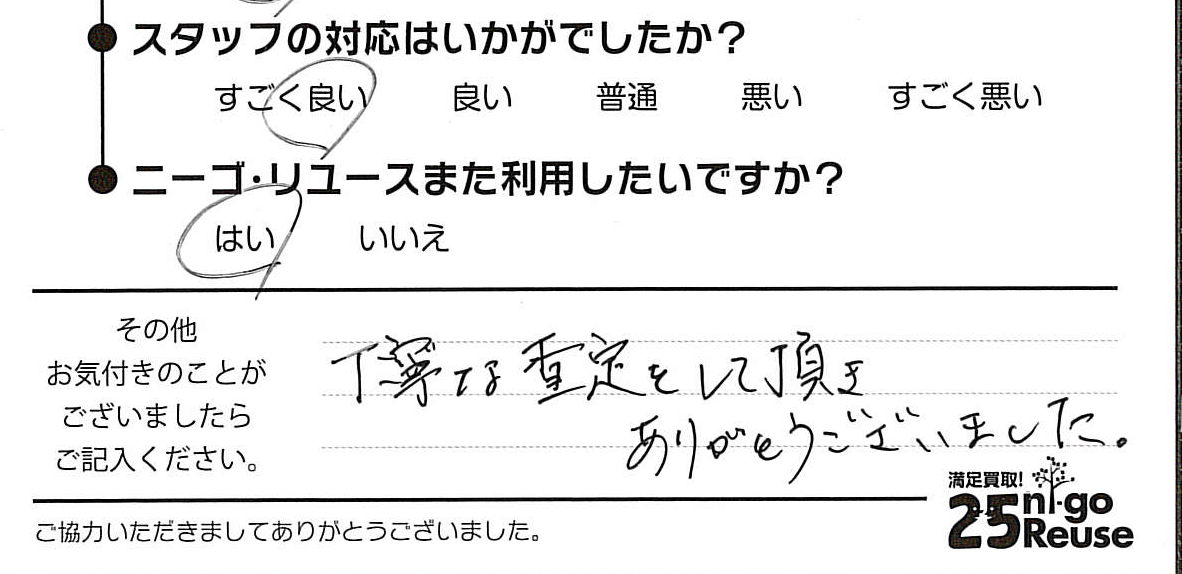 スタッフの対応はいかがでしたか？
すごく良い 良い 普通 悪い すごく悪い
ニーゴ・リユースまた利用したいですか？
はい いいえ
その他
お気付きのことが
ございましたら
ご記入ください。
丁寧な査定をして頂き
ありがとうございました。
満足買取!
25 ni-go
Reuse
ご協力いただきましてありがとうございました。